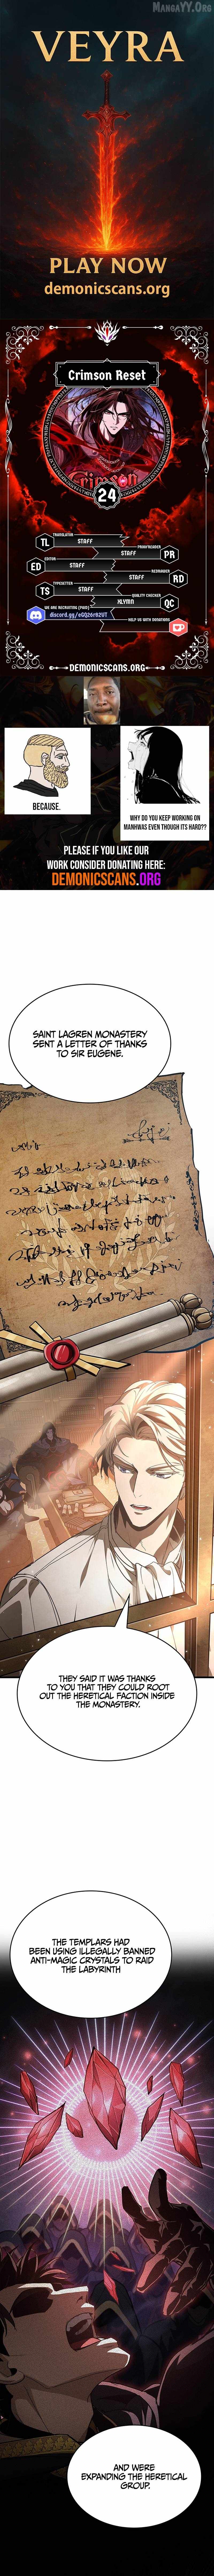 MANGAYY.ORG
VEYRA
PLAY NOW
demonicscans.org
Crimson Reset
24
TRANSLATOR
TL
STAFF
PROOFREADER
STAFF
PR
EDITOR
ED
STAFF
REDRAWER
STAFF
RD
TYPESETTER
TS
STAFF
QUALITY CHECKER
XLYMN
QC
WE ARE RECRUITING (PAID)
HELP US WITH DONATIONS
DEMONICSCANS.ORG
BECAUSE.
WHY DO YOU KEEP WORKING ON
MANHWAS EVEN THOUGH ITS HARD??
PLEASE IF YOU LIKE OUR
WORK CONSIDER DONATING HERE:
DEMONICSCANS.ORG
SAINT LAGREN MONASTERY
SENT A LETTER OF THANKS
TO SIR EUGENE.
THEY SAID IT WAS THANKS
TO YOU THAT THEY COULD ROOT
OUT THE HERETICAL FACTION INSIDE
THE MONASTERY.
THE TEMPLARS HAD
BEEN USING ILLEGALLY BANNED
ANTI-MAGIC CRYSTALS TO RAID
THE LABYRINTH
AND WERE
EXPANDING THE HERETICAL
GROUP.